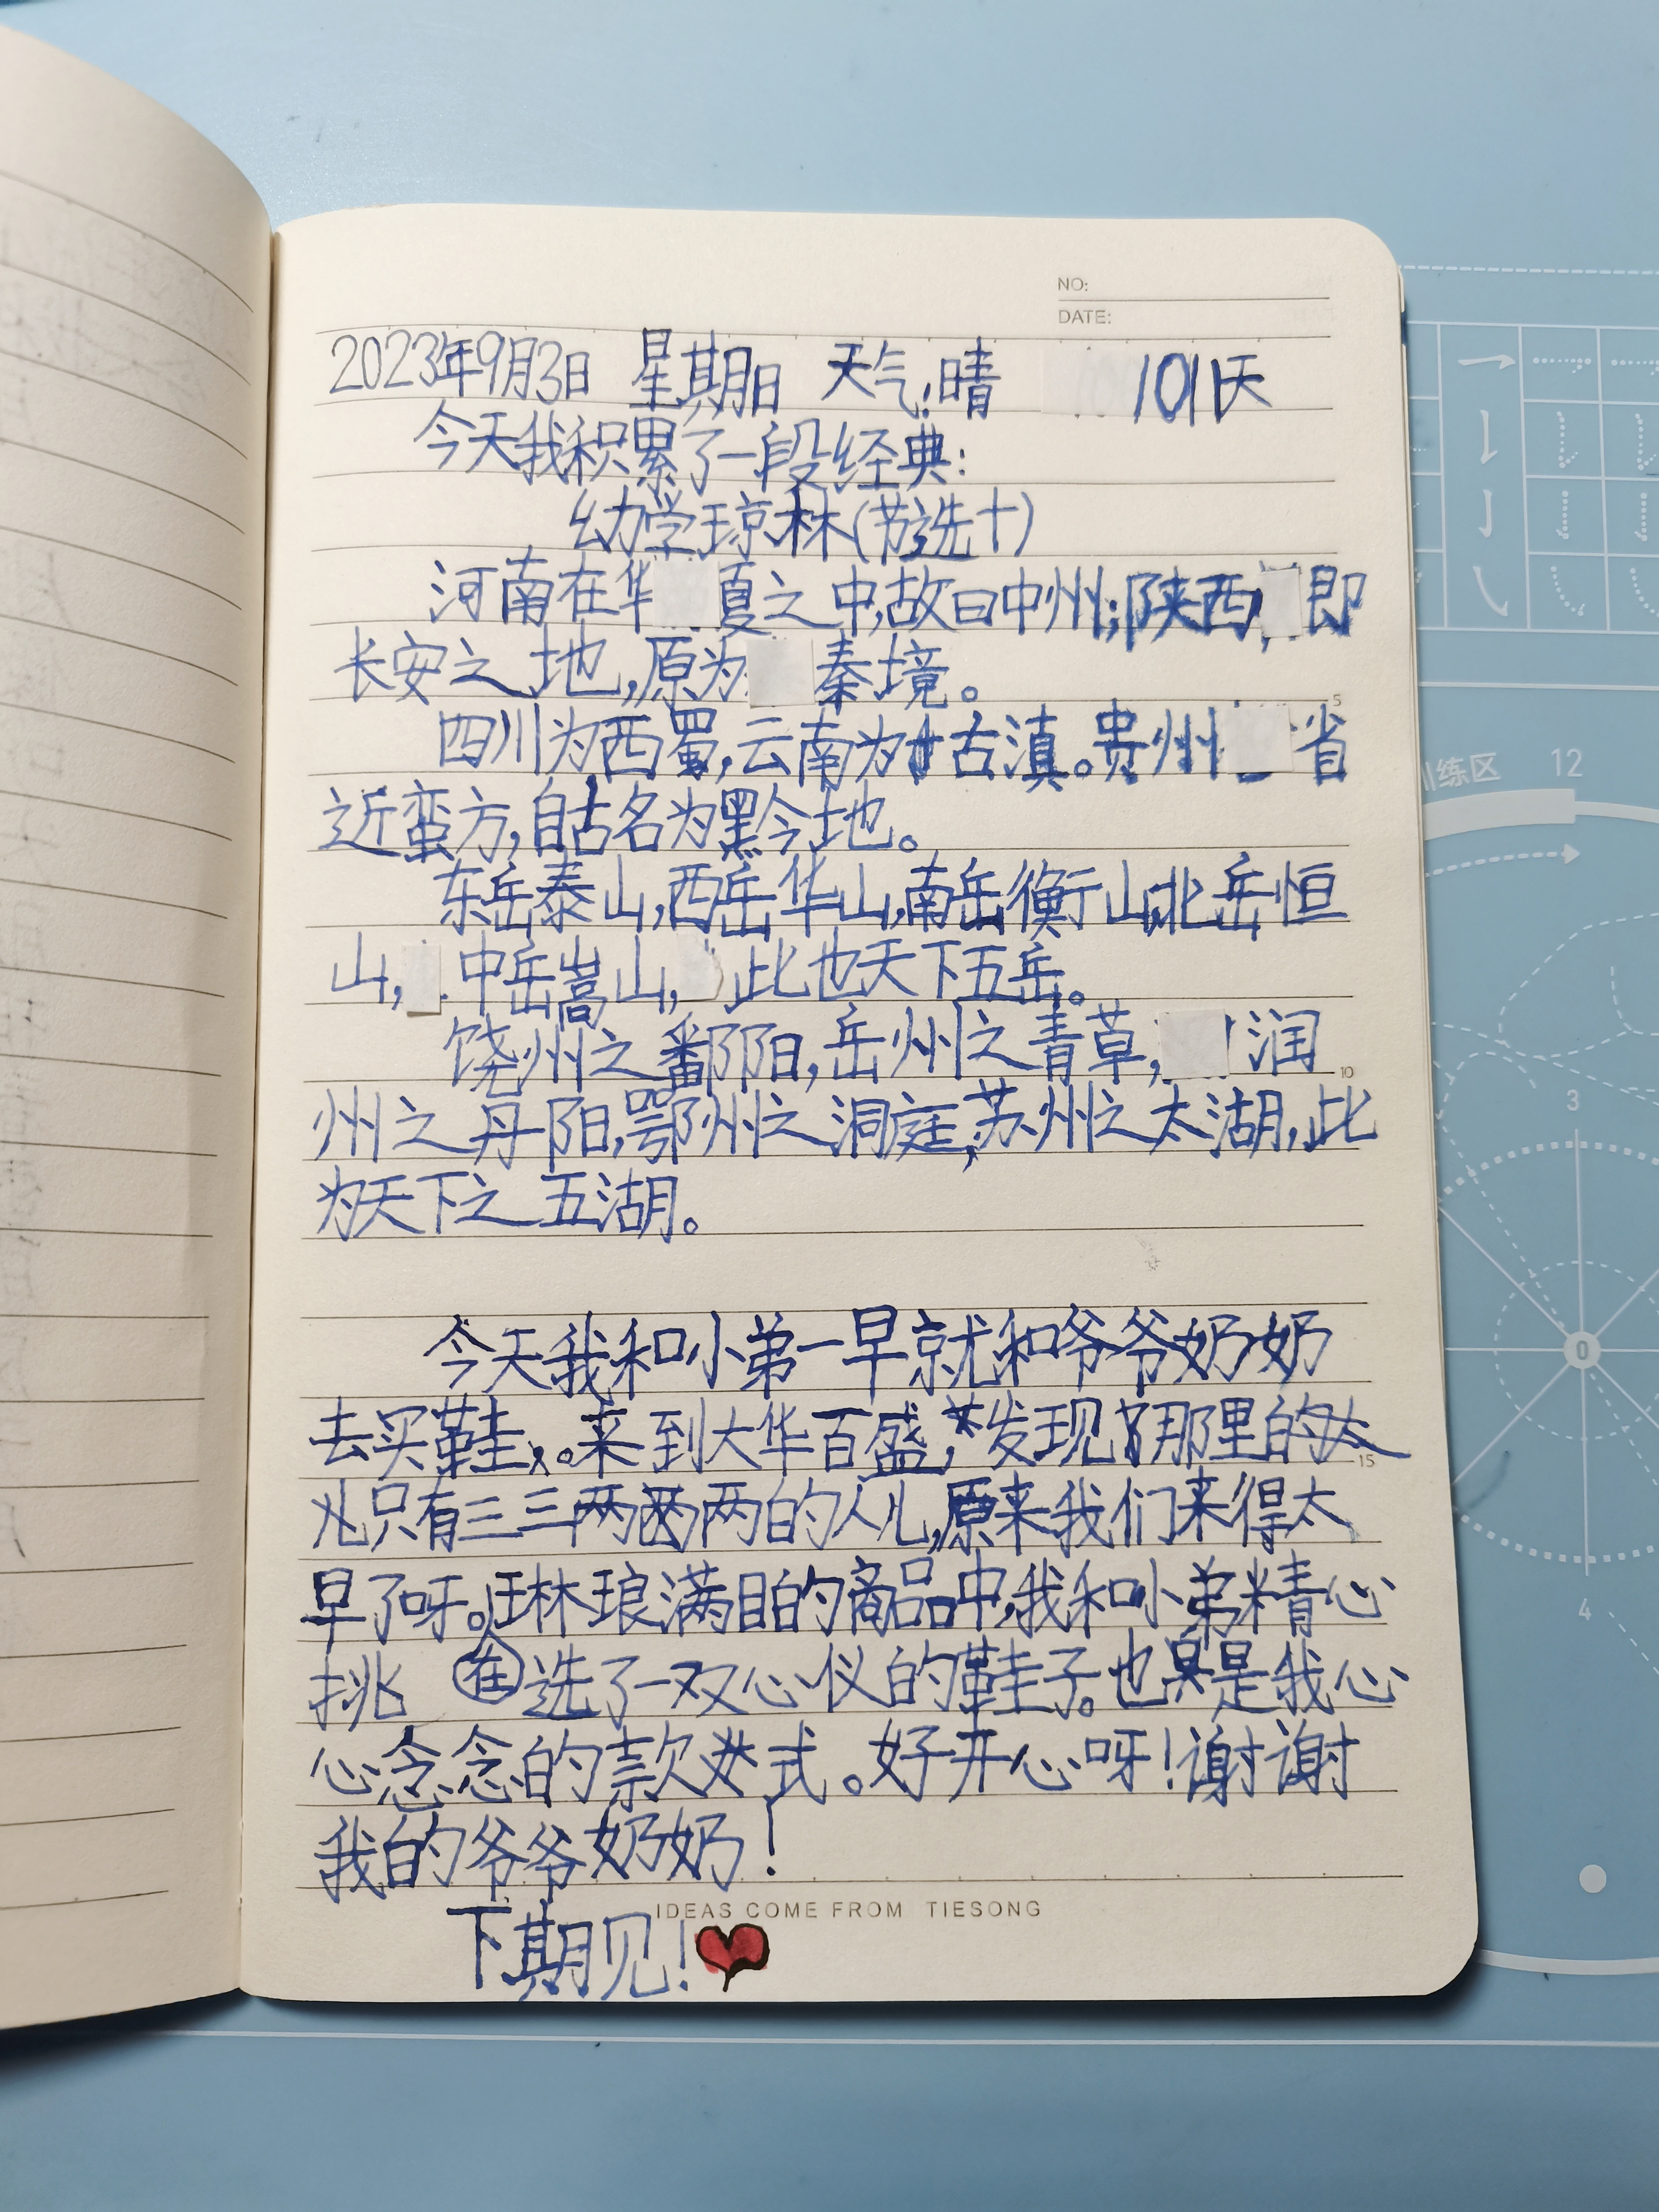 NO:
DATE:
2023年9月3日 星期日 天气:晴 101天
今天我积累了一段经典:
幼学琼林(节选十)
河南在华夏之中,故曰中州;陕西,即
长安之地,原为秦境。
四川为西蜀,云南为古滇。贵州省
近蛮方,自古名为黔地。
东岳泰山,西岳华山,南岳衡山,北岳恒
山,中岳嵩山,此也天下五岳。
饶州之鄱阳,岳州之青草,润
州之丹阳,鄂州之洞庭,苏州之太湖,此
为天下之五湖。
今天我和小弟一早就和爷爷奶奶
去买鞋。来到大华百盛,发现那里的
只有三三两两的人儿,原来我们来得太
早了呀。琳琅满目的商品中,我和小弟精心
挑选了一双心仪的鞋子。也是我心
心念念的款式。好开心呀!谢谢
我的爷爷奶奶!
IDEAS COME FROM TIESONG
下期见!
训练区
12
3
0
4
5
10
15